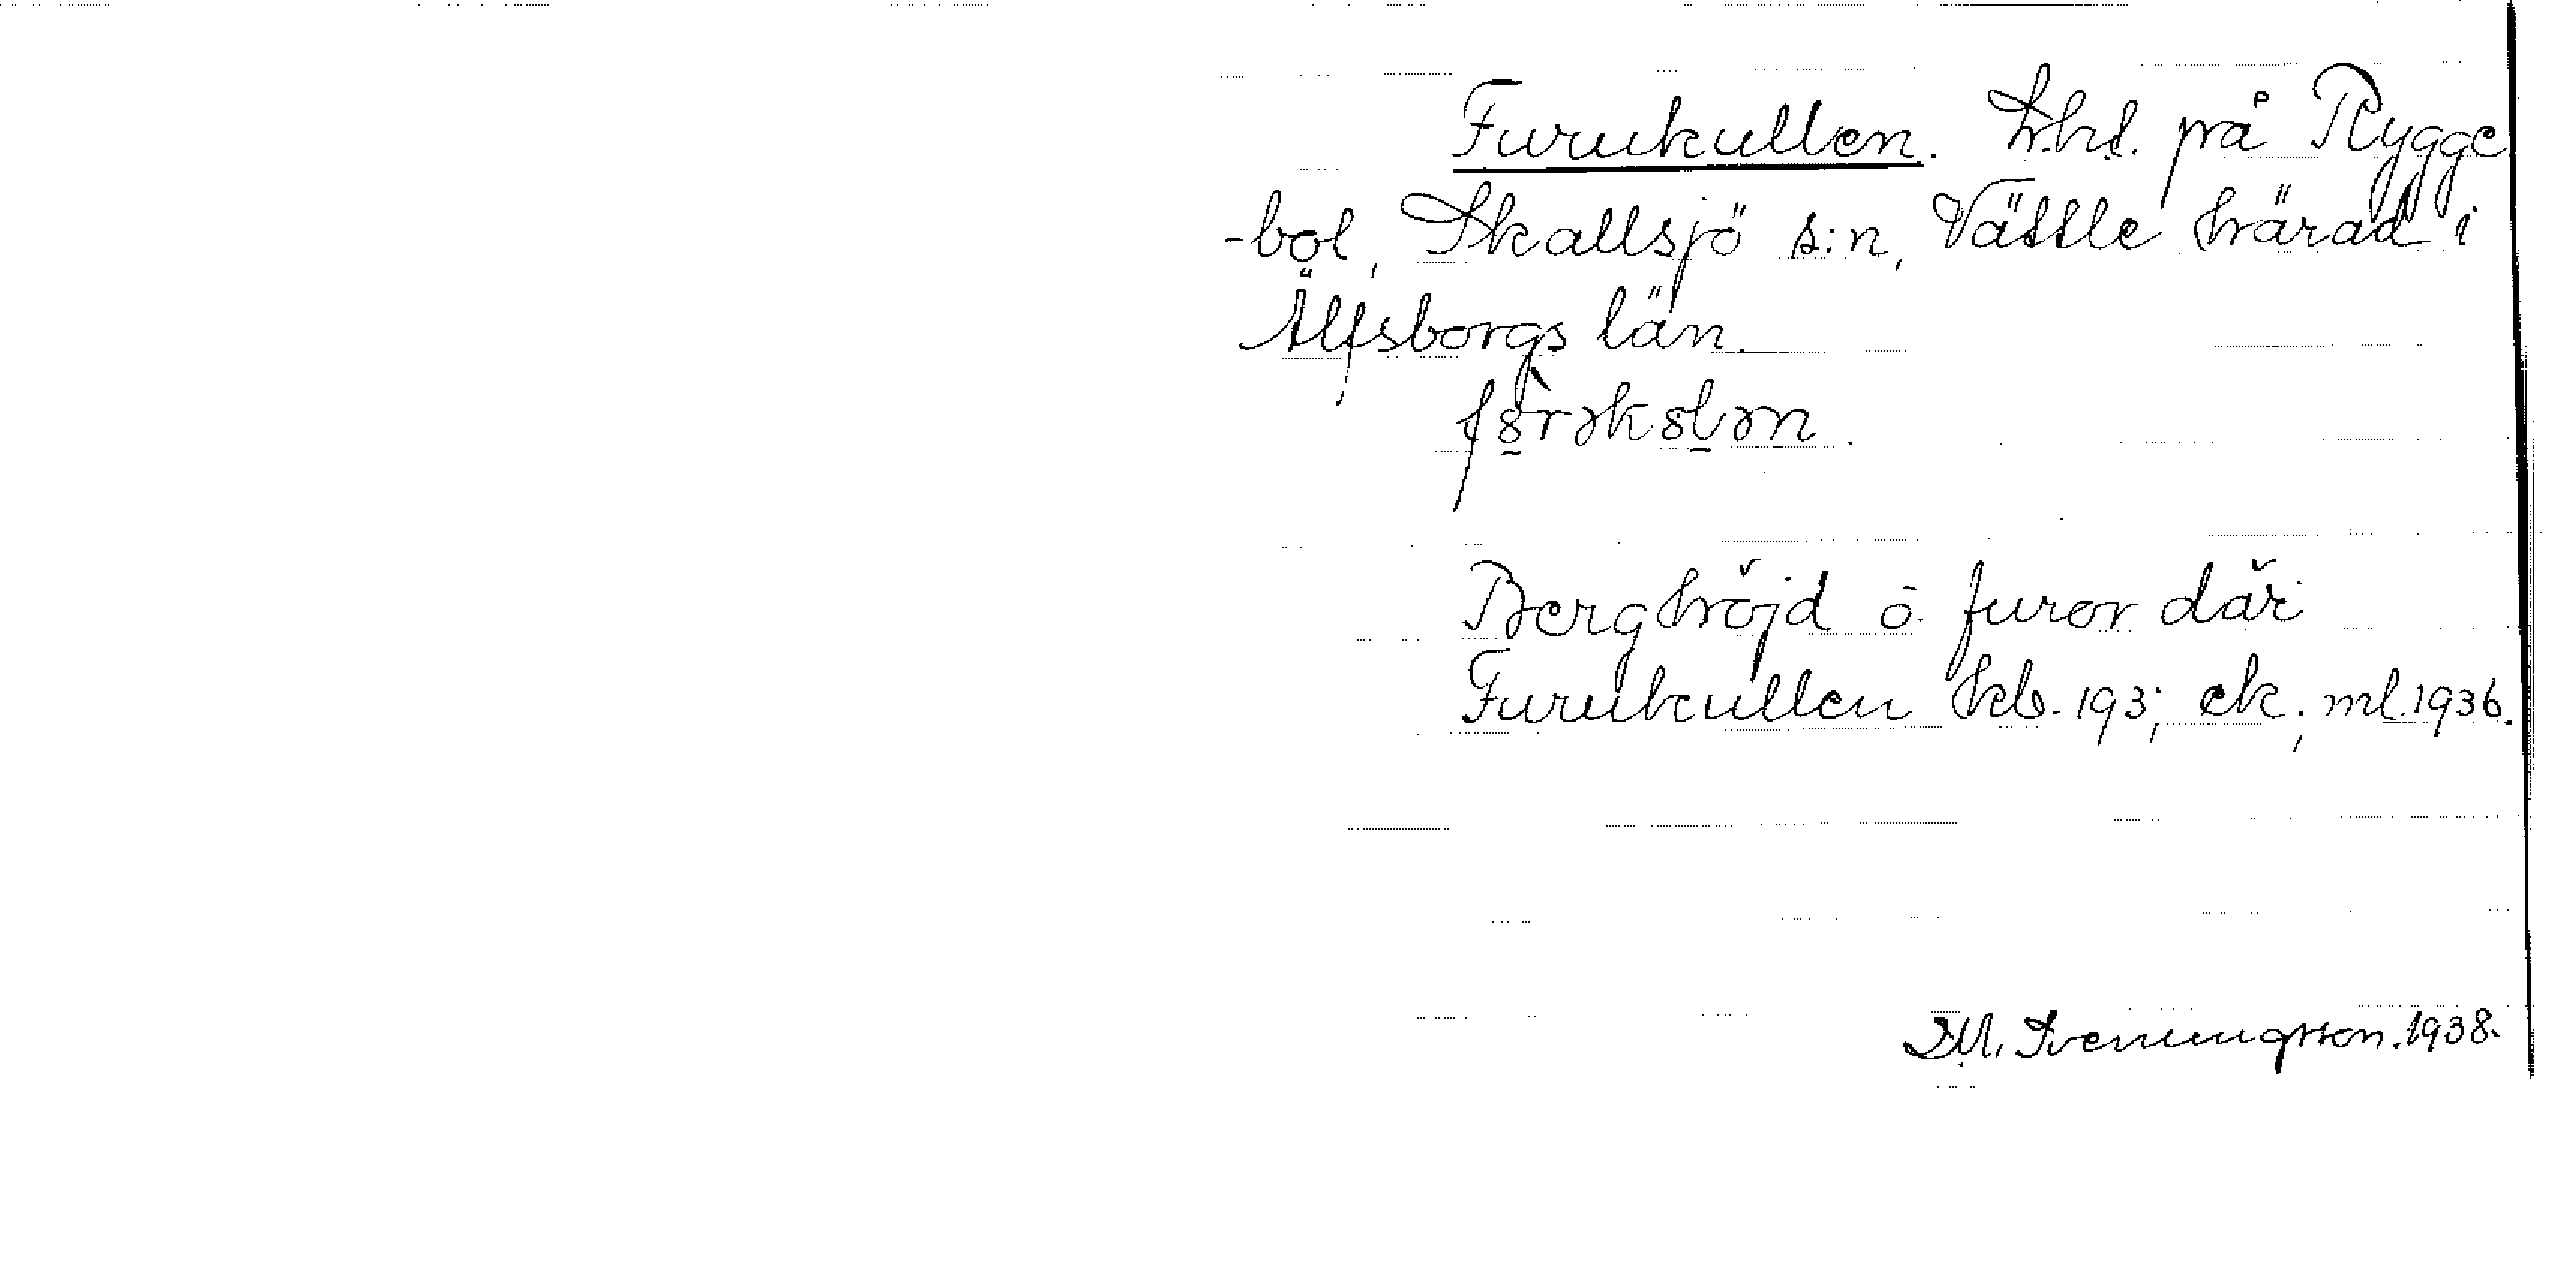 Furukullen. Lht. på Rygge
-bol, Skallsjö s:n, Vättle härad i
Älfsborgs län.
Berghöjd o. furor där
Furukullen hkb. 193; ek.; ml. 1936.
D.M. Svenningsson. 1938.